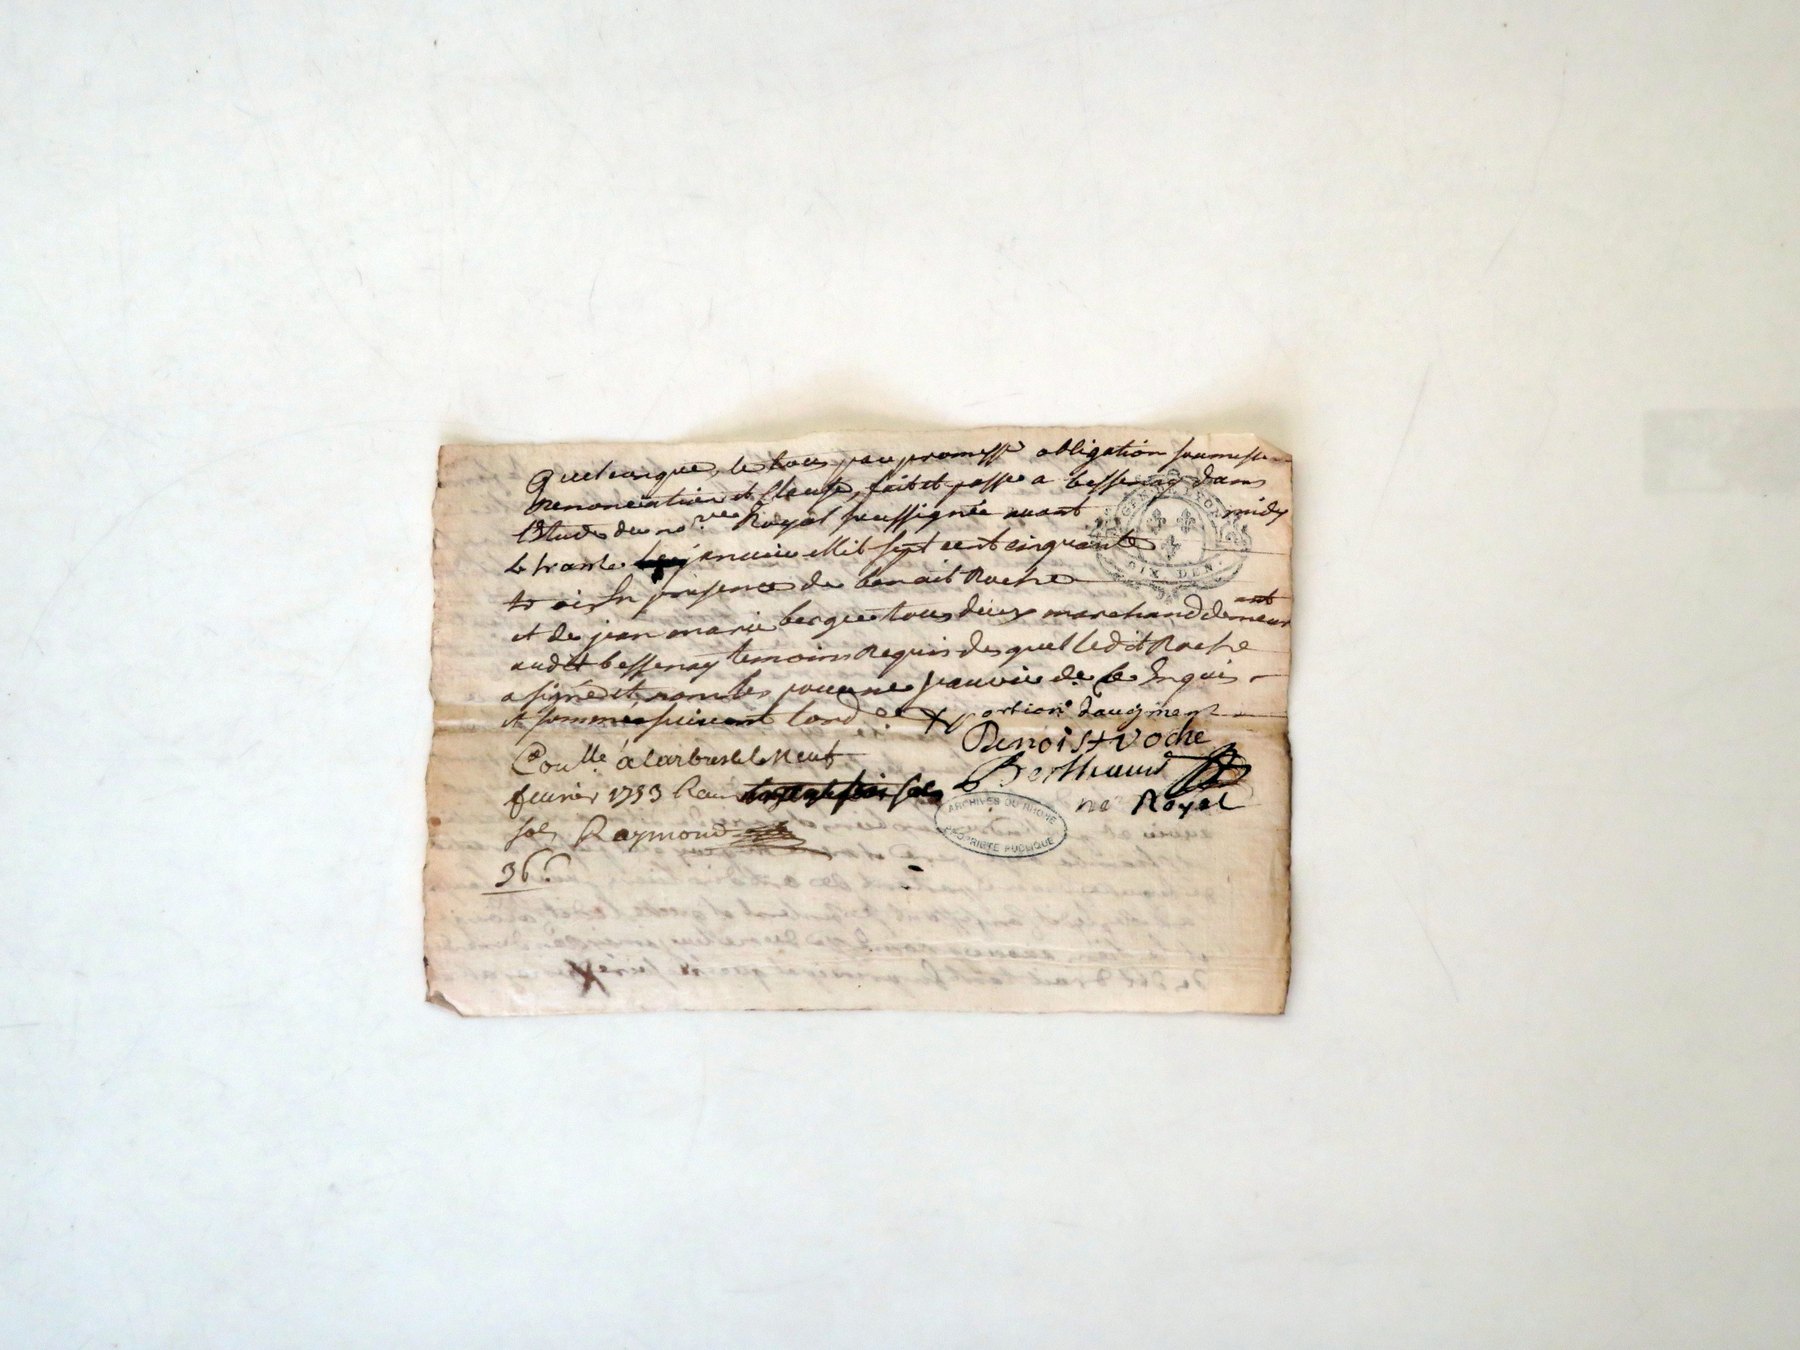 quelconque, le tous par promesse obligation soumission
Renonciation et Clause, fait et passe a bessenay dans
l'Etude du no.re Royal soussignée avant midy
le trante janvier Mil sept cent cinquante
trois En presence de benoit Roche
et de jean marie berque tous deux marchand demeurant
audit bessenay temoins Requis desquel ledit Roche
a signé et non les pour ne scavoir de ce Enquis
et sommés suivant lord.e
portion d'augment
Benoist roche
Conllé a Larbresle le Neuf
Berthaud
fevrier 1753 Reçu sols
no.re Royal
sols Raymond
36
GEN. LYON
SIX DEN.
ARCHIVES DU RHONE
PROPRIÉTÉ PUBLIQUE